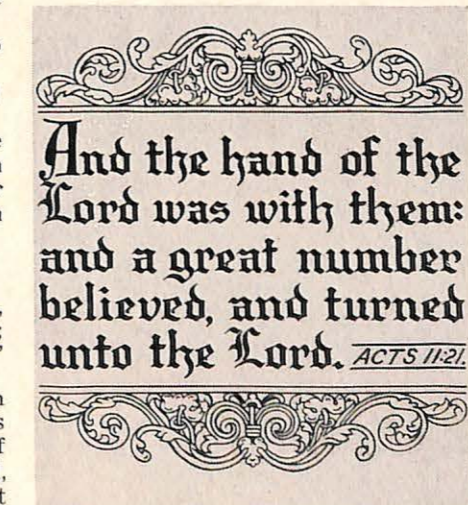 And the hand of the
Lord was with them:
and a great number
believed, and turned
unto the Lord. ACTS 11:21.